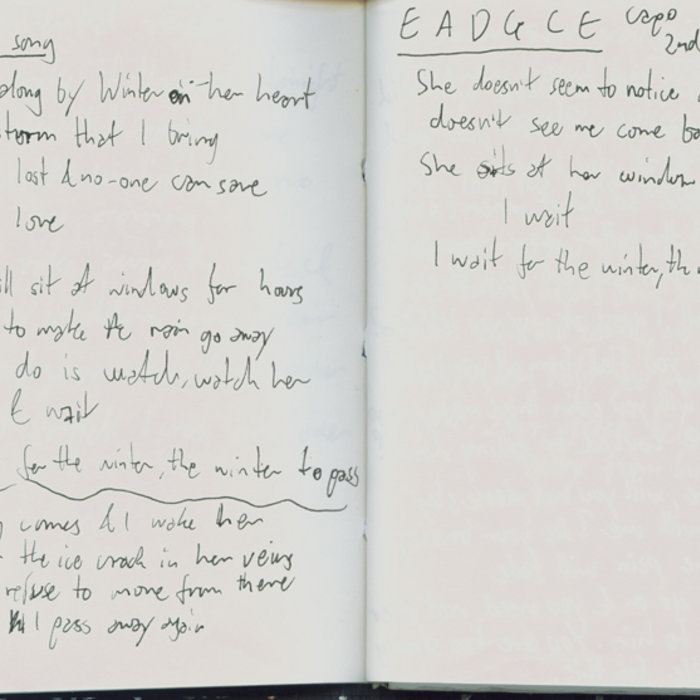 song
along by Winter in her heart
storm that I bring
lost & no-one can save
love
sit at windows for hours
to make the rain go away
do is watch, watch her
& wait
for the winter, the winter to pass
comes & I wake her
the ice crack in her veins
refuse to move from there
I pass away again
E A D G C E Capo
2nd
She doesn't seem to notice
doesn't see me come
She sits at her window
I wait
I wait for the winter, the